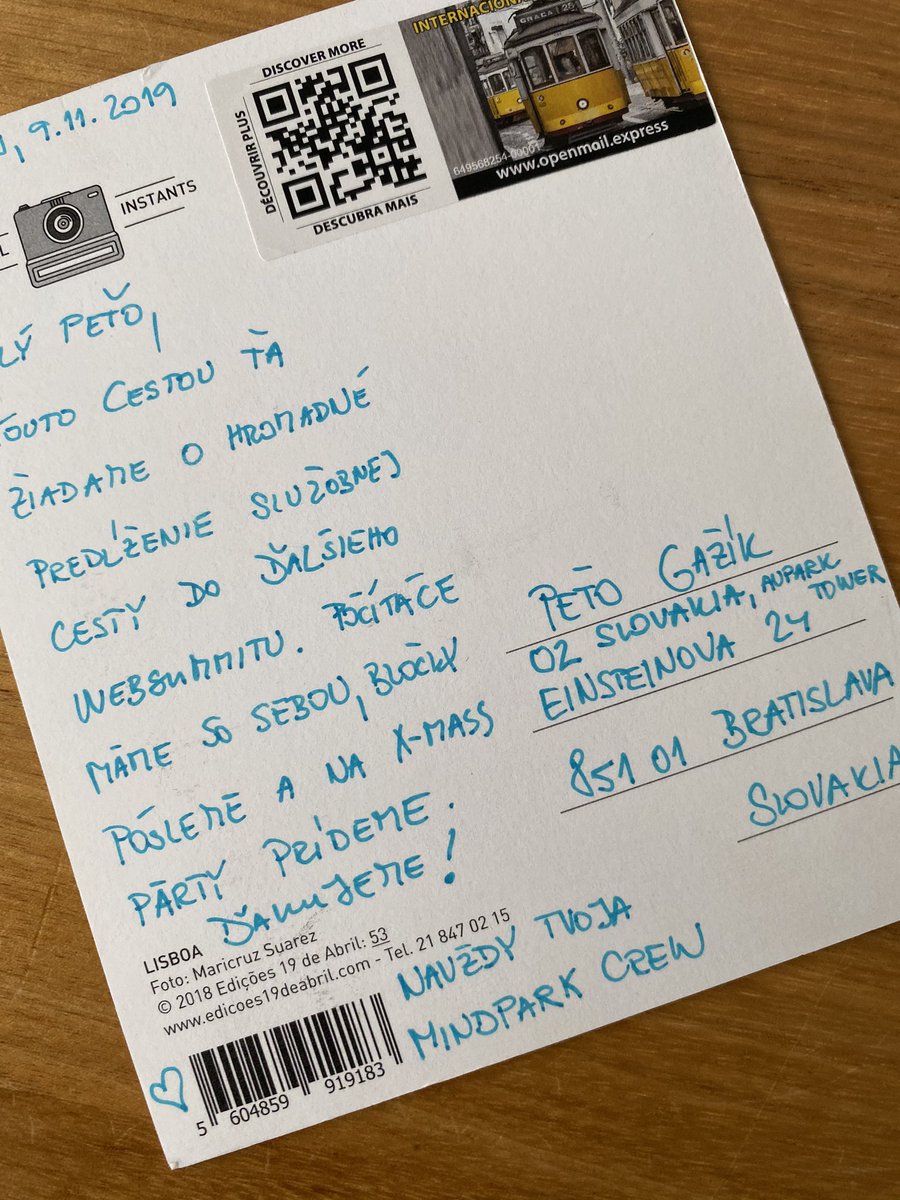 DISCOVER MORE
DÉCOUVRIR PLUS
DESCUBRA MAIS
INTERNACIONA
GRAÇA 28
649568254-00001
www.openmail.express
, 9.11.2019
L
INSTANTS
LÝ PEŤO,
TOUTO CESTOU ŤA
ŽIADAME O HROMADNÉ
PREDĺŽENIE SLUŽOBNEJ
CESTY DO ĎALŠIEHO
WEBSUMMITU. POČÍTAČE
MÁME SO SEBOU, BLOČKY
PÓSLEME A NA X-MASS
PÁRTY PRÍDEME.
ĎAKUJEME!
NAVŽDY TVOJA
MINDPARK CREW
PEŤO GAŽÍK
O2 SLOVAKIA, AUPARK TOWER
EINSTEINOVA 24
851 01 BRATISLAVA
SLOVAKIA
LISBOA
Foto: Maricruz Suarez
© 2018 Edições 19 de Abril: 53
www.edicoes19deabril.com - Tel. 21 847 02 15
5 604859 919183